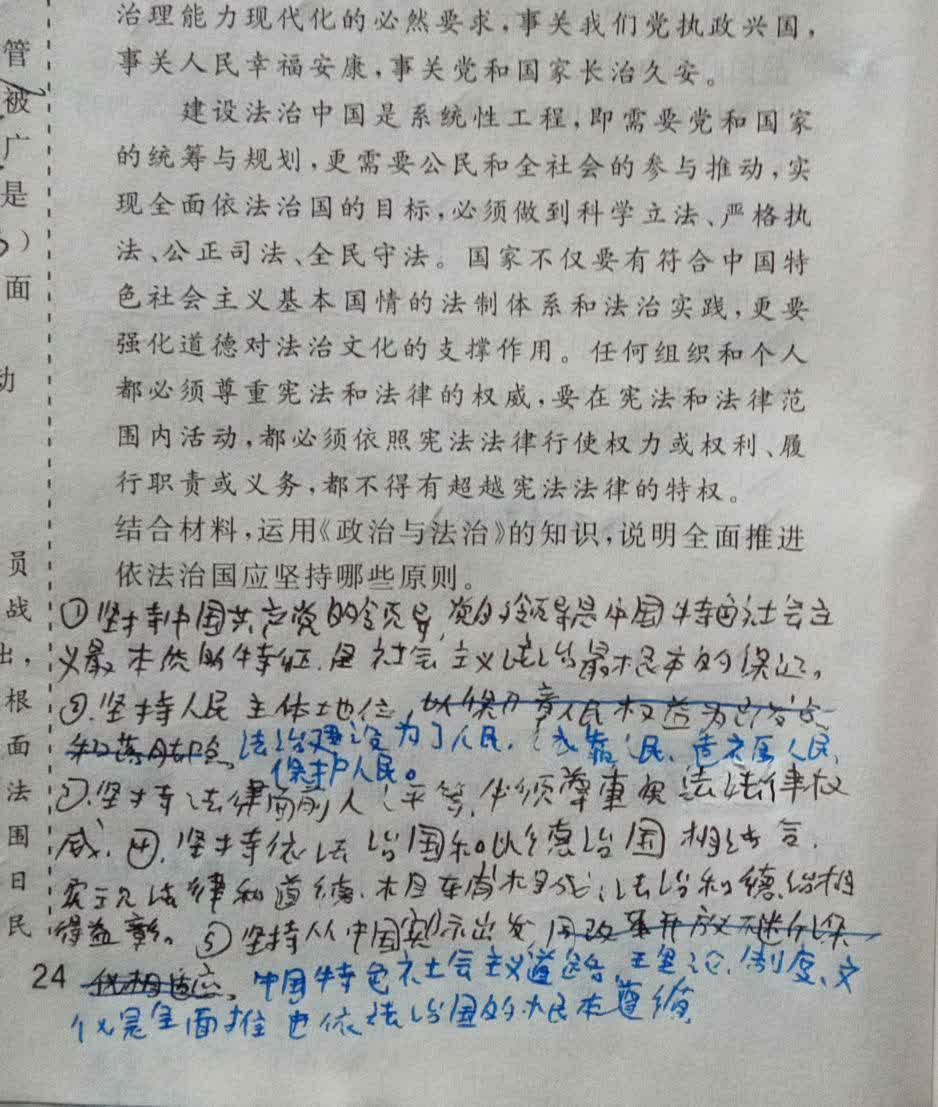 治理能力现代化的必然要求,事关我们党执政兴国,
事关人民幸福安康,事关党和国家长治久安。
建设法治中国是系统性工程,即需要党和国家
的统筹与规划,更需要公民和全社会的参与推动,实
现全面依法治国的目标,必须做到科学立法、严格执
法、公正司法、全民守法。国家不仅要有符合中国特
色社会主义基本国情的法制体系和法治实践,更要
强化道德对法治文化的支撑作用。任何组织和个人
都必须尊重宪法和法律的权威,要在宪法和法律范
围内活动,都必须依照宪法法律行使权力或权利、履
行职责或义务,都不得有超越宪法法律的特权。
结合材料,运用《政治与法治》的知识,说明全面推进
依法治国应坚持哪些原则。
①坚持中国共产党的领导,党的领导是中国特色社会主
义最本质的特征,是社会主义法治最根本的保证。
②.坚持人民主体地位,
法治建设为了人民,依靠人民,造福人民,
保护人民。
③.坚持法律面前人人平等,必须尊重宪法法律权
威.④.坚持依法治国和以德治国相结合.
实现法律和道德相辅相成,法治和德治相
得益彰。⑤坚持从中国实际出发,
中国特色社会主义道路、理论、制度、文
化是全面推进依法治国的根本遵循.
24
管
被
广
是
)
面
动
员
战
出,
根
面
法
围
日
民